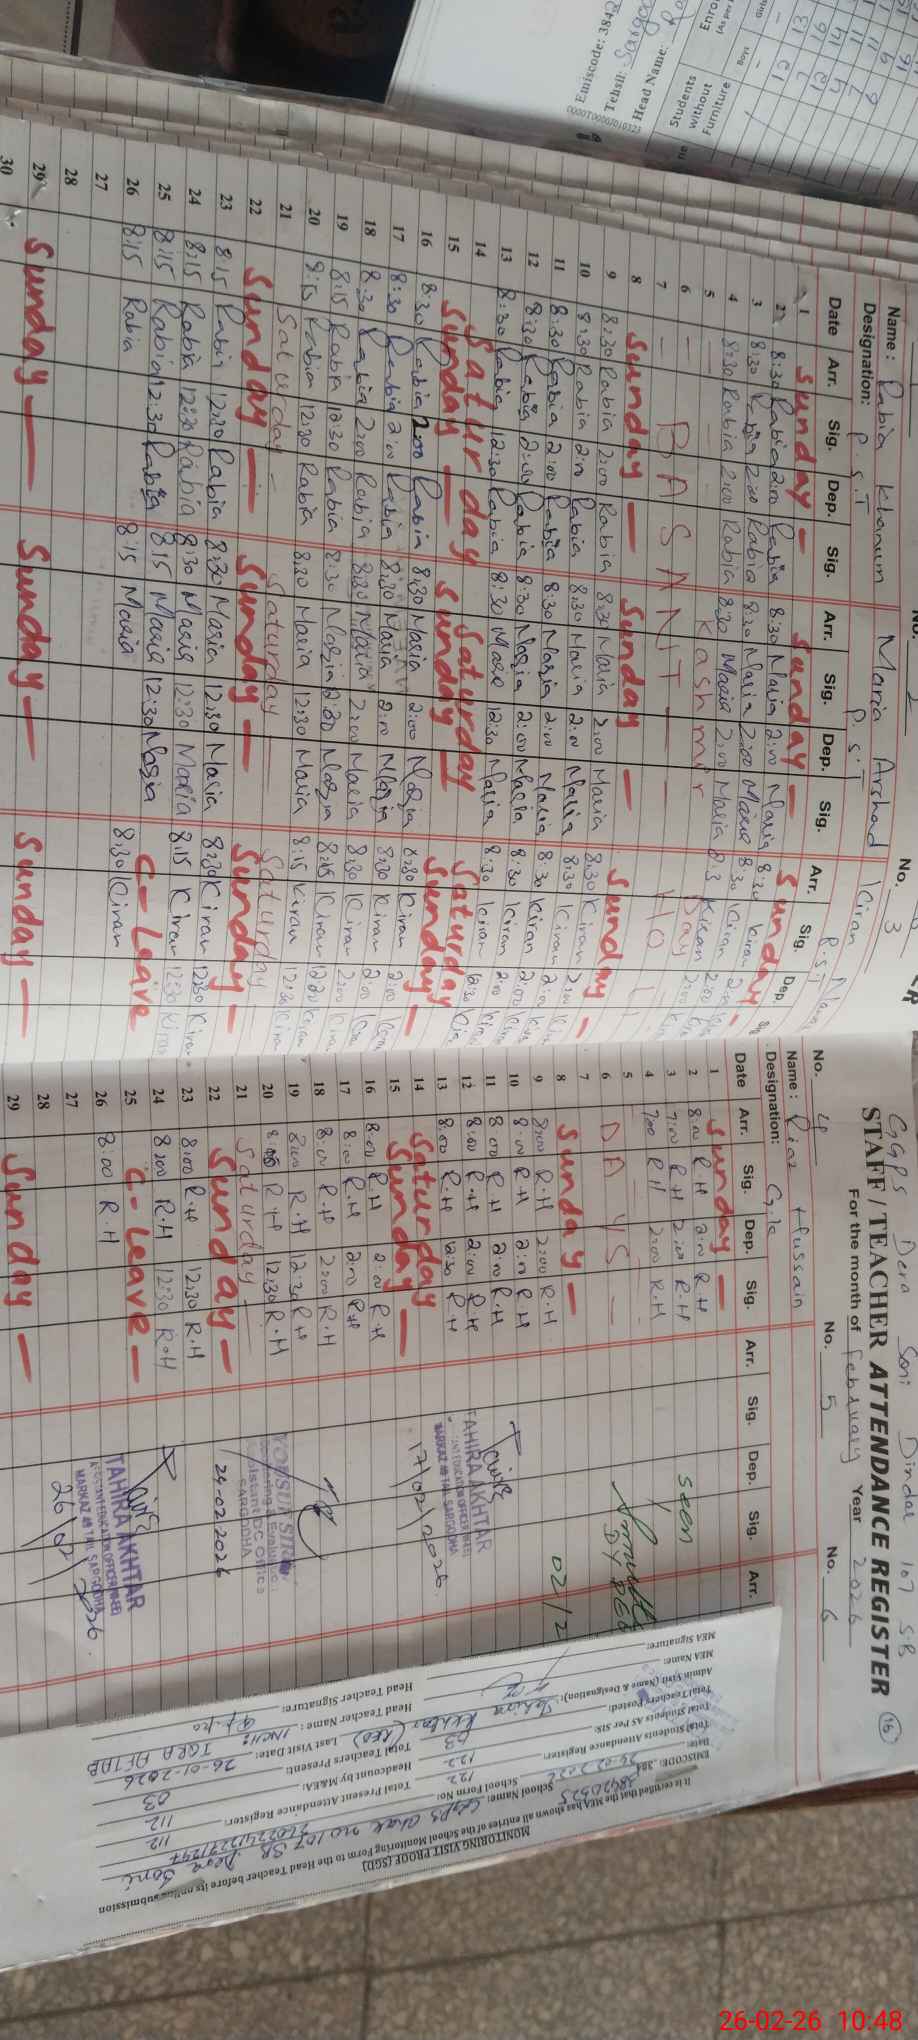 GGPS Dera Soni Dindar 107 S.B
16
STAFF / TEACHER ATTENDANCE REGISTER
For the month of February Year 2026
No. 2 No. 3
Name: Rabia Khanum Maria Arshad Kiran
Designation: P.S.T P.S.T P.S.T
Date Arr. Sig. Dep. Sig. Arr. Sig. Dep. Sig. Arr. Sig. Dep.
1 Sunday — Sunday — Sunday —
2 8:30 Rabia 2:00 Rabia 8:30 Maria 2:00 Maria 8:30 Kiran 2:00
3 8:30 Rabia 2:00 Rabia 8:30 Maria 2:00 Maria 8:30 Kiran 2:00
4 8:30 Rabia 2:00 Rabia 8:30 Maria 2:00 Maria Kiran 2:00
5 Kashmir Day
6 BASANT HO
7
8 Sunday — Sunday — Sunday —
9 8:30 Rabia 2:00 Rabia 8:30 Maria 2:00 Maria 8:30 Kiran 2:00
10 8:30 Rabia 2:00 Rabia 8:30 Maria 2:00 Maria 8:30 Kiran 2:00
11 8:30 Rabia 2:00 Rabia 8:30 Maria 2:00 Maria 8:30 Kiran 2:00
12 8:30 Rabia 2:00 Rabia 8:30 Maria 2:00 Maria 8:30 Kiran 2:00
13 8:30 Rabia 12:30 Rabia 8:30 Maria 12:30 Maria 8:30 Kiran 12:30
14 Saturday Saturday Saturday
15 Sunday — Sunday — Sunday —
16 8:30 Rabia 2:00 Rabia 8:30 Maria 2:00 Maria 8:30 Kiran 2:00
17 8:30 Rabia 2:00 Rabia 8:30 Maria 2:00 Maria 8:30 Kiran 2:00
18 8:30 Rabia 2:00 Rabia 8:30 Maria 2:00 Maria 8:30 Kiran 2:00
19 8:15 Rabia 12:30 Rabia 8:30 Maria 12:30 Maria 8:15 Kiran 12:30 Kiran
20 8:15 Rabia 12:30 Rabia 8:30 Maria 12:30 Maria 8:15 Kiran 12:30 Kiran
21 Saturday — Saturday Saturday
22 Sunday — Sunday — Sunday —
23 8:15 Rabia 12:30 Rabia 8:30 Maria 12:30 Maria 8:30 Kiran 12:30 Kiran
24 8:15 Rabia 12:30 Rabia 8:30 Maria 12:30 Maria 8:15 Kiran 12:30 Kiran
25 8:15 Rabia 12:30 Rabia 8:15 Maria 12:30 Maria C-Leave
26 8:15 Rabia 8:15 Maria 8:30 Kiran
27
28
29 Sunday — Sunday — Sunday —
30
No. 4 No. 5 No. 6
Name: Riaz Hussain
Designation: C-iv
Date Arr. Sig. Dep. Sig. Arr. Sig. Dep. Sig. Arr.
1 Sunday —
2 8:00 R.H 2:00 R.H
3 7:00 R.H 2:00 R.H
4 7:00 R.H 2:00 R.H
5
6 DAYS
7
8 Sunday —
9 8:00 R.H 2:00 R.H
10 8:00 R.H 2:00 R.H
11 8:00 R.H 2:00 R.H
12 8:00 R.H 2:00 R.H
13 8:00 R.H 12:30 R.H
14 Saturday
15 Sunday —
16 8:00 R.H 2:00 R.H
17 8:00 R.H 2:00 R.H
18 8:00 R.H 2:00 R.H
19 8:00 R.H 12:30 R.H
20 R.H 12:30 R.H
21 Saturday
22 Sunday —
23 8:00 R.H 12:30 R.H
24 8:00 R.H 12:30 R.H
25 C-Leave —
26 8:00 R.H
27
28
29 Sunday —
Seen
DY DEO
02/2
TAHIRA AKHTAR
MARKAZ 49 TAIL SARGODHA
17/02/2026
Assistant DC Office
SARGODHA
24-02-2026
TAHIRA AKHTAR
ASSISTANT EDUCATION OFFICER
MARKAZ 49 TAIL SARGODHA
26/02/2026
MONITORING VISIT PROOF (SGD)
It is certified that the MEA has shown all entries of the School Monitoring Form to the Head Teacher before its online submission
EMISCODE: 38420325
School Name: GGPS Chak no 107 SB Dera Soni
Date: 24-02-2026
School Form No:
Total Students Attendance Register: 122
Total Present Attendance Register: 112
Total Students As Per SIS: 122
Headcount by M&EA: 112
Total Teachers Posted: 03
Total Teachers Present: 03
Admin Visit (Name & Designation): Tahira Akhtar (AEO)
Last Visit Date: 26-01-2026
MEA Name:
Head Teacher Name: IQRA AFTAB
MEA Signature:
Head Teacher Signature:
Emiscode: 3842
Tehsil: Sargo
Head Name:
0000T0000J010323
Students without Furniture
Enro
Boys
26-02-26 10:48